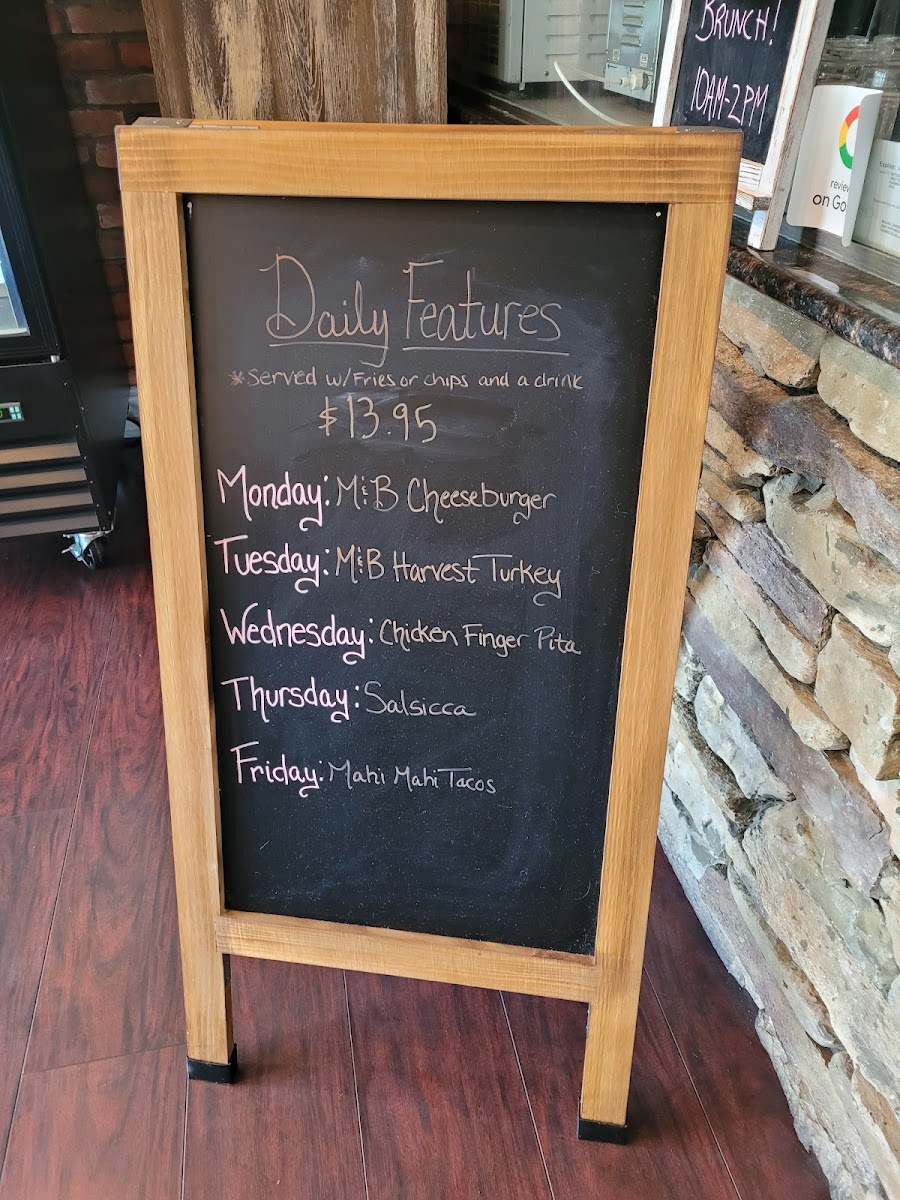 BRUNCH!
10AM-2PM
on Go
Daily Features
*Served w/Fries or chips and a drink
$13.95
Monday: M&B Cheeseburger
Tuesday: M&B Harvest Turkey
Wednesday: Chicken Finger Pita
Thursday: Salsicca
Friday: Mahi Mahi Tacos